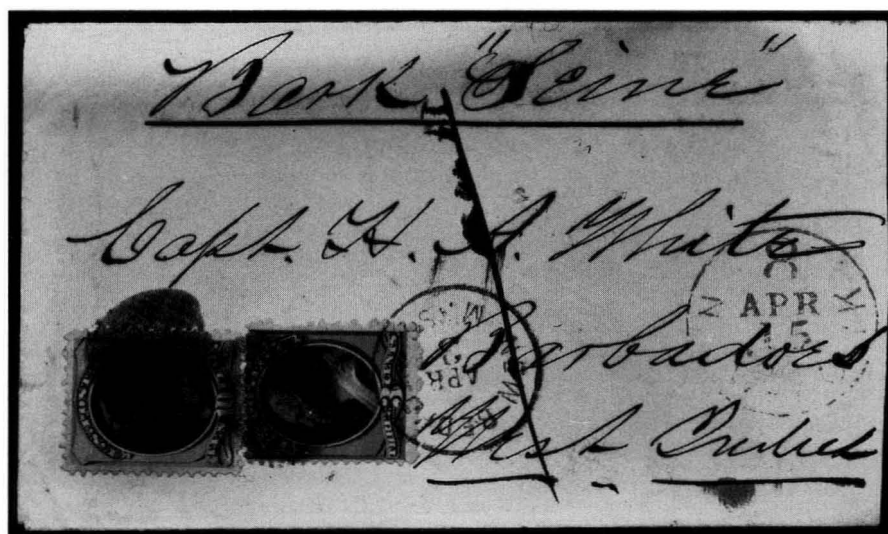 Bark "Seine"
Capt. H. A. White
Barbadoes
West Indies
APR
15
APR